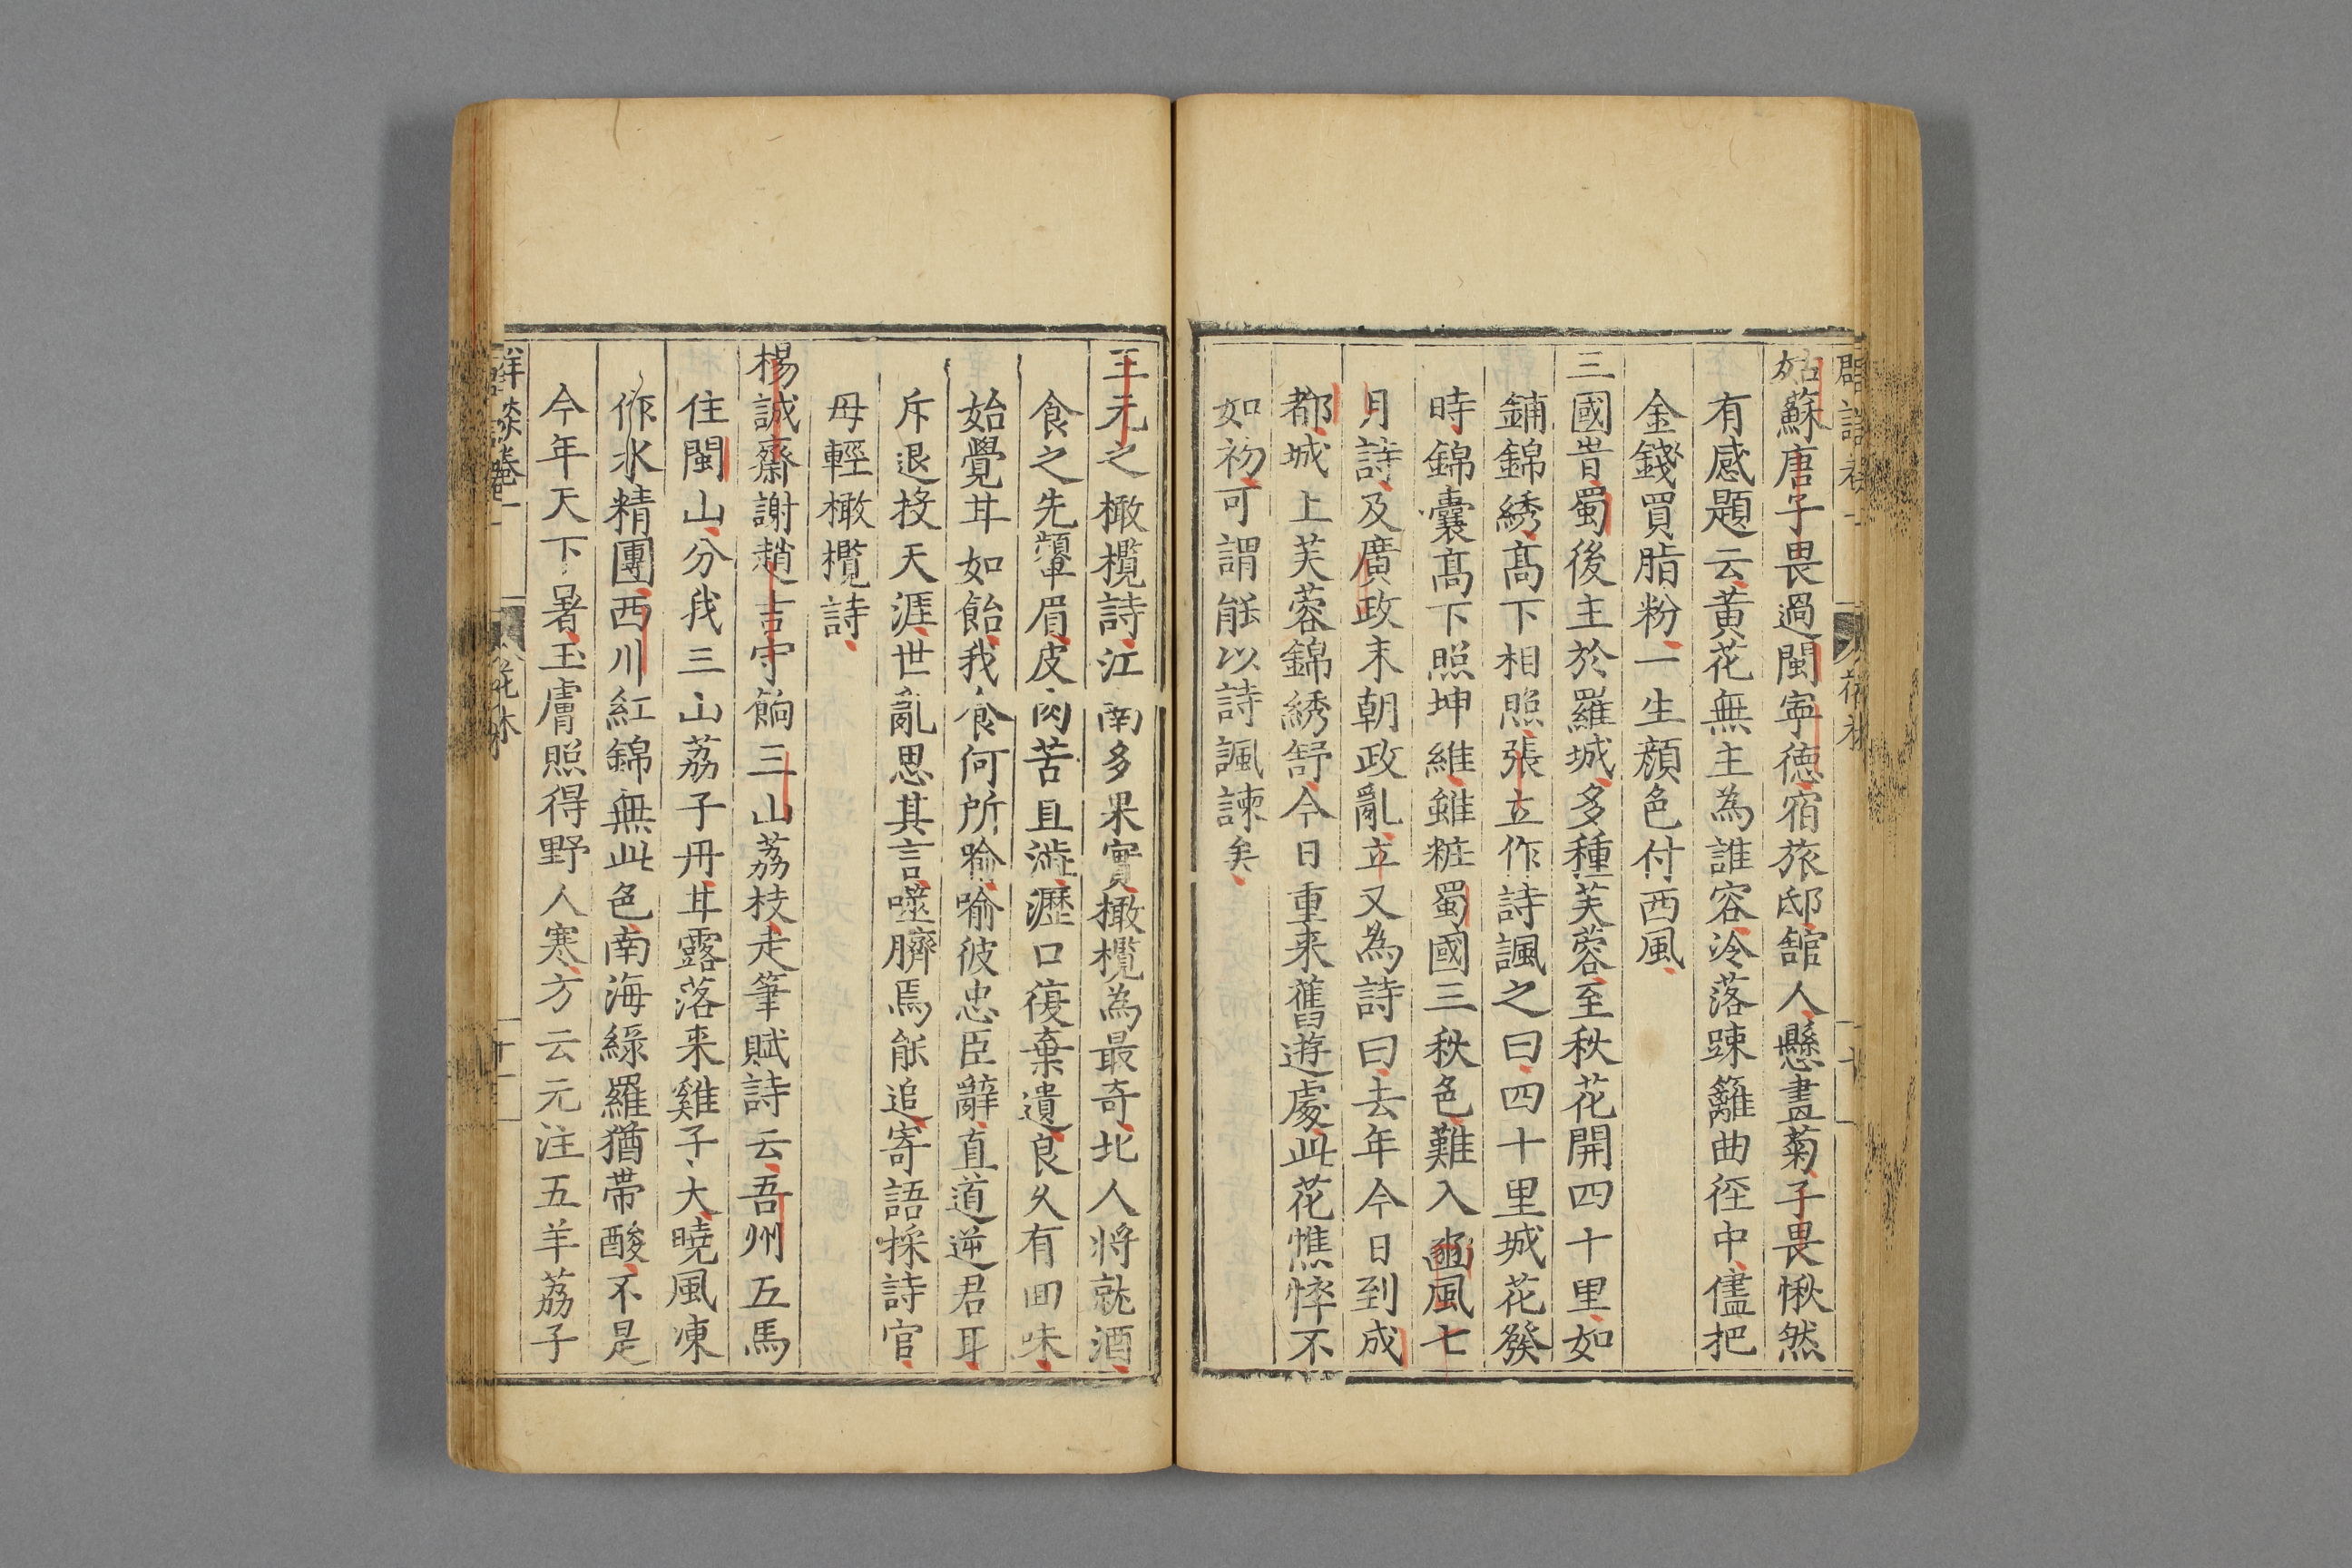 姑蘇唐子畏過閩寧德宿旅邸舘人懸畫菊子畏愀然
有感題云黄花無主為誰容冷落踈籬曲徑中儘把
金錢買脂粉一生顔色付西風
三國昔蜀後主於羅城多種芙蓉至秋花開四十里如
鋪錦綉髙下相照張立作詩諷之曰四十里城花發
時錦囊髙下照坤維雖粧蜀國三秋色難入豳風七
月詩及廣政末朝政亂立又為詩曰去年今日到成
都城上芙蓉錦綉舒今日重来舊遊處此花憔悴不
如初可謂能以詩諷諫矣
王元之橄欖詩江南多果實橄欖為最奇北人將就酒
食之先顰眉皮肉苦且澁瀝口復棄遺良久有回味
始覺甘如飴我食何所喻喻彼忠臣辭直道逆君耳
斥退投天涯世亂思其言噬臍焉能追寄語採詩官
毋輕橄欖詩
楊誠齋謝趙吉守餉三山荔枝走筆賦詩云吾州五馬
住閩山分我三山荔子丹甘露落来雞子大曉風凍
作水精團西川紅錦無此色南海綠羅猶帶酸不是
今年天下暑玉膚照得野人寒方云元注五羊荔子
群談卷一
花林
十一